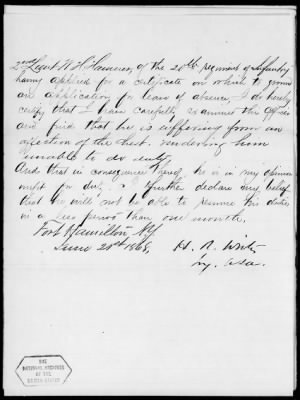 2nd Lieut W. H. Hamner of the 20th regiment of Infantry
having applied for a certificate on which to ground
an application for leave of absence, I do hereby
certify that I have carefully examined this officer
and find that he is suffering from an
affection of the chest, rendering him
unable to do duty
And that in consequence thereof, he is in my opinion
unfit for duty. I further declare my belief
that he will not be able to resume his duties
in a less period than one month.
Fort Hamilton NY
June 20th 1868,
H. R.
THE
NATIONAL ARCHIVES
OF THE
UNITED STATES